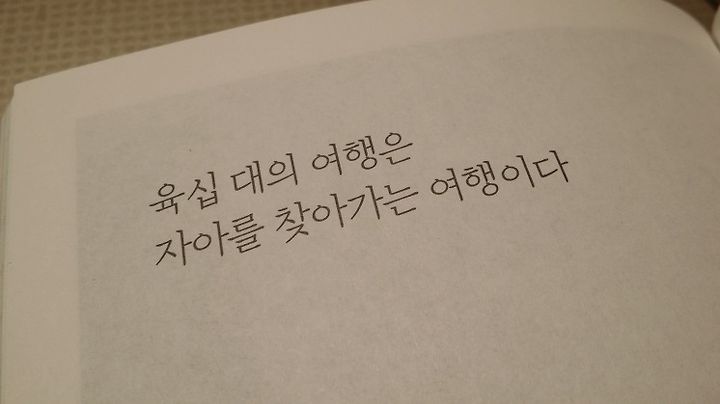 육십 대의 여행은
자아를 찾아가는 여행이다